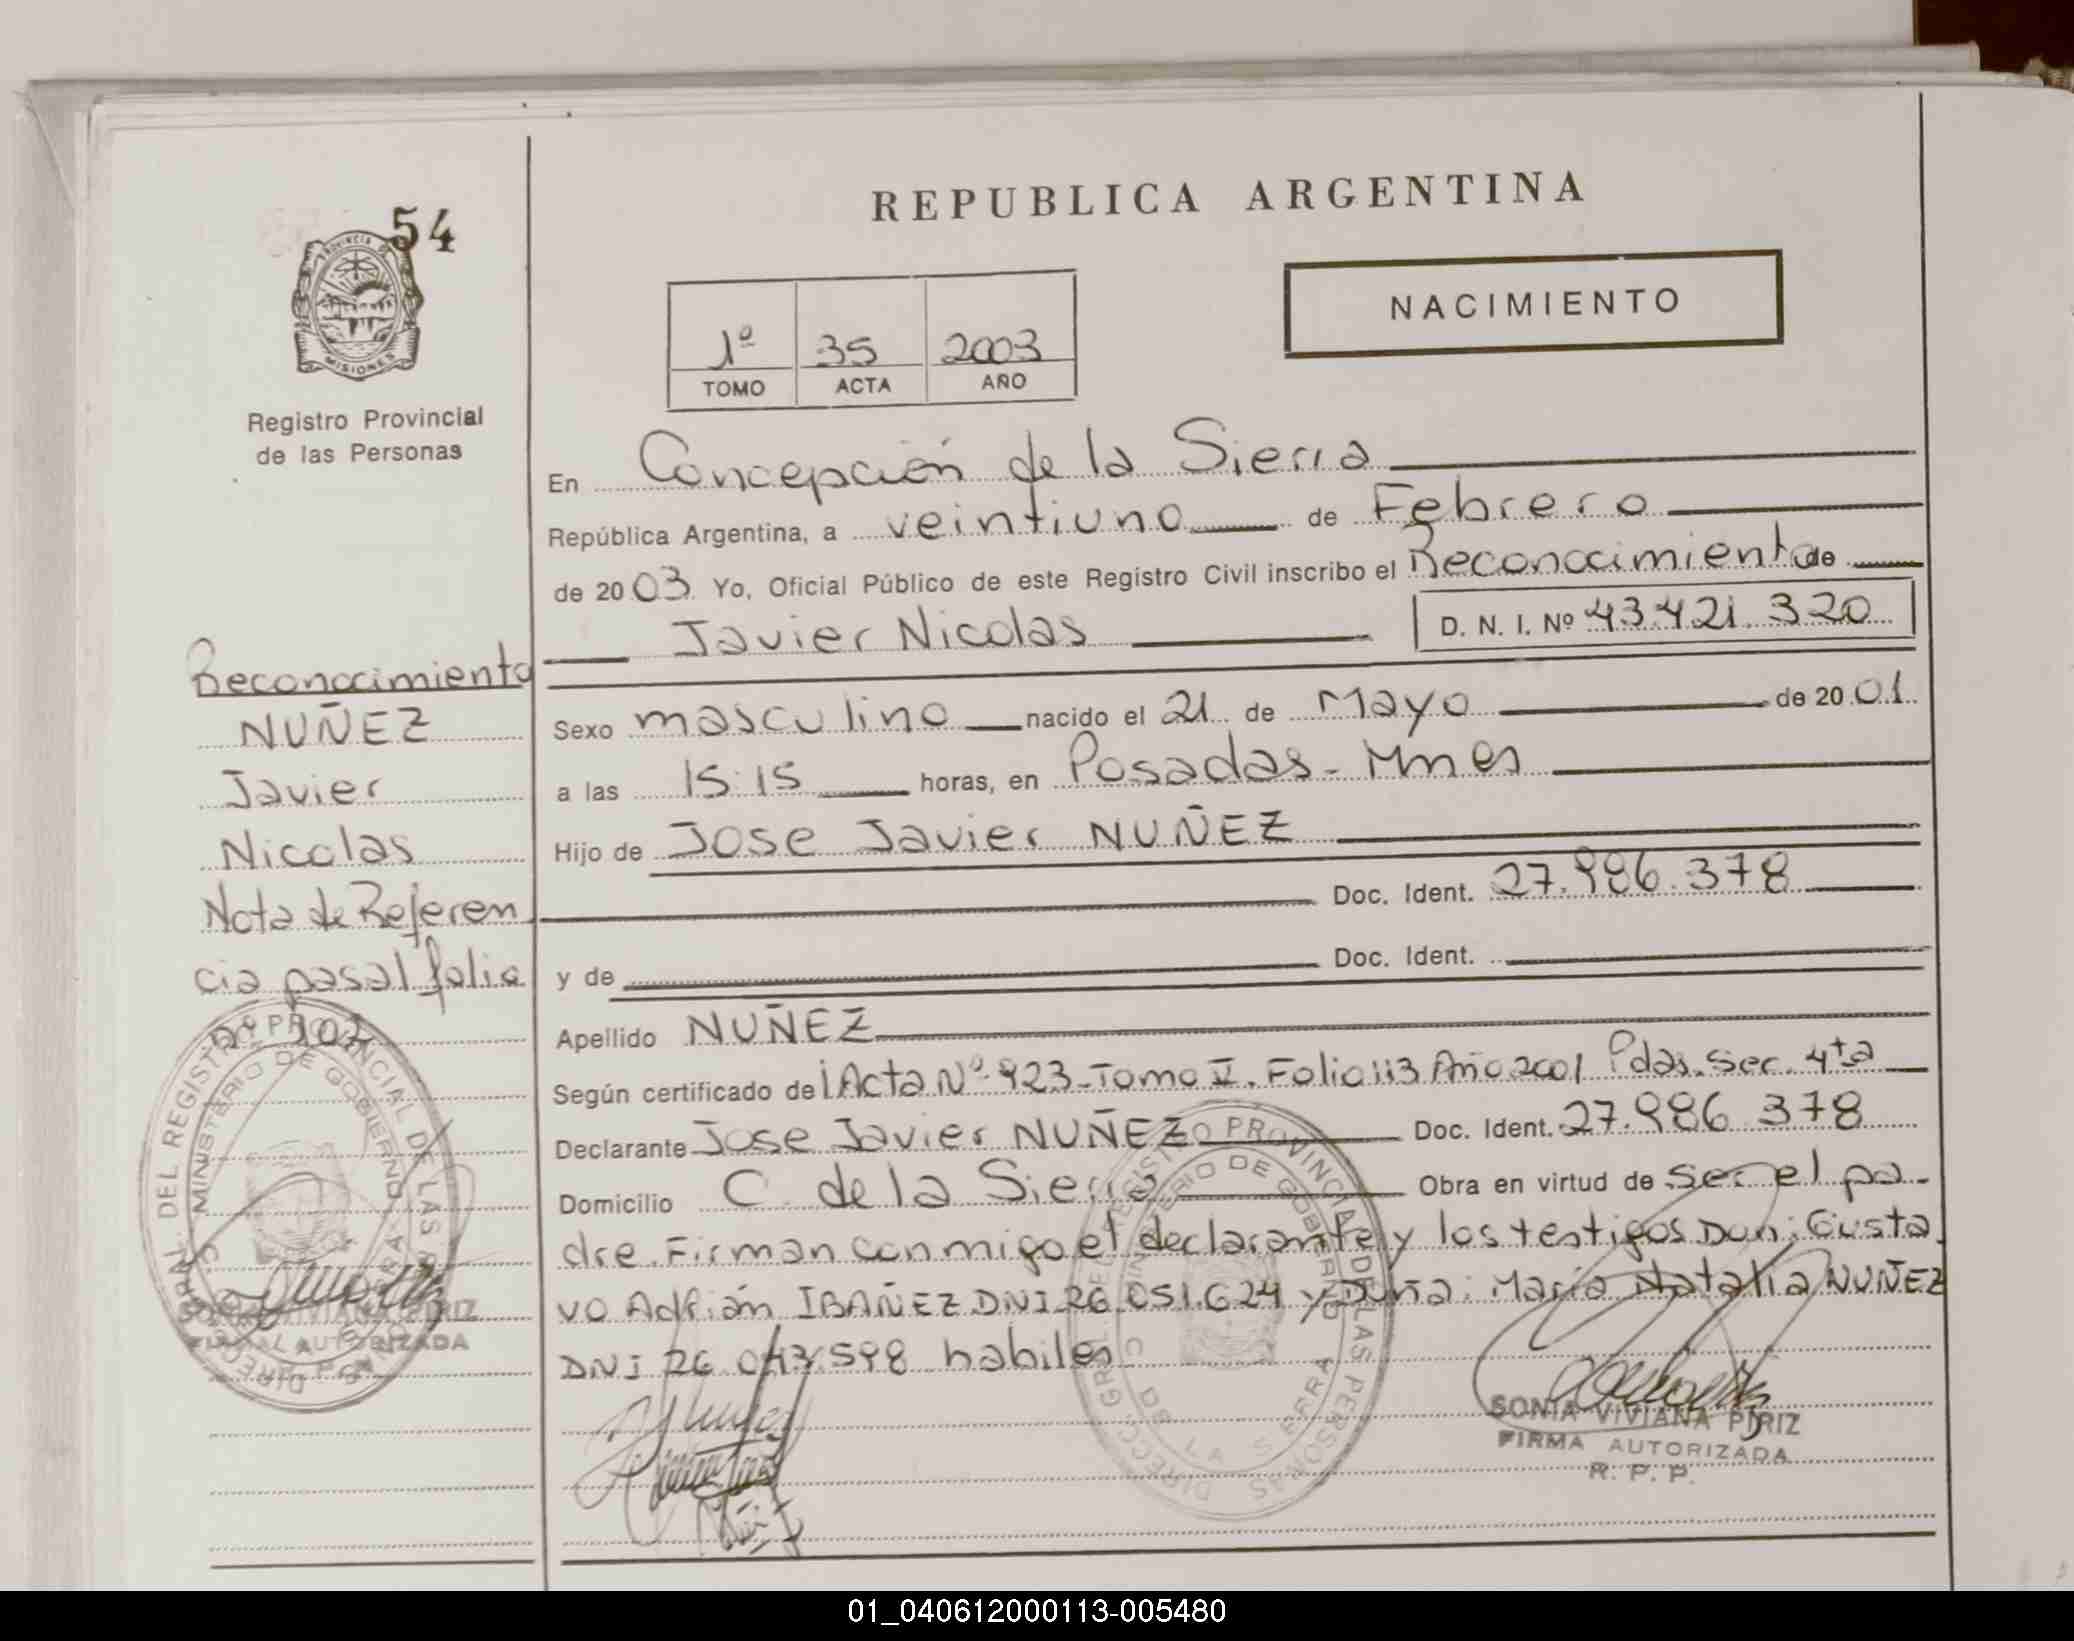 54
REPUBLICA ARGENTINA
NACIMIENTO
PROVINCIA DE
MISIONES
Registro Provincial
de las Personas
1º 35 2003
TOMO ACTA AÑO
En Concepción de la Sierra
República Argentina, a veintiuno de Febrero
de 2003 Yo, Oficial Público de este Registro Civil inscribo el Reconocimiento de
Javier Nicolas D. N. I. Nº 43.421.320
Sexo masculino nacido el 21 de Mayo de 2001.
a las 15:15 horas, en Posadas - Mnes
Hijo de Jose Javier NUÑEZ
Doc. Ident. 27.986.378
y de Doc. Ident.
Apellido NUÑEZ
Según certificado de Acta Nº 923 - Tomo II. Folio 113 Año 2001 Pdas. Sec. 4ta
Declarante Jose Javier NUÑEZ Doc. Ident. 27.986.378
Domicilio C. de la Sierra Obra en virtud de ser el pa-
dre. Firman conmigo el declarante y los testigos Don: Gusta
vo Adrián IBAÑEZ DNI 26.051.624 y Doña: María Natalia NUÑEZ
DNI 26.043.598 habiles
SONIA VIVIANA PIRIZ
FIRMA AUTORIZADA
R. P. P.
Reconocimiento
NUÑEZ
Javier
Nicolas
Nota de Referen
cia pasa al folio
nº 107
DIRECC. GRAL. DEL REGISTRO PROVINCIAL DE LAS PERSONAS
MINISTERIO DE GOBIERNO
C. DE LA SIERRA
SONIA VIVIANA PIRIZ
FIRMA AUTORIZADA
R. P. P.
DIRECC. GRAL. DEL REGISTRO PROVINCIAL DE LAS PERSONAS
MINISTERIO DE GOBIERNO
C. DE LA SIERRA
01_040612000113-005480